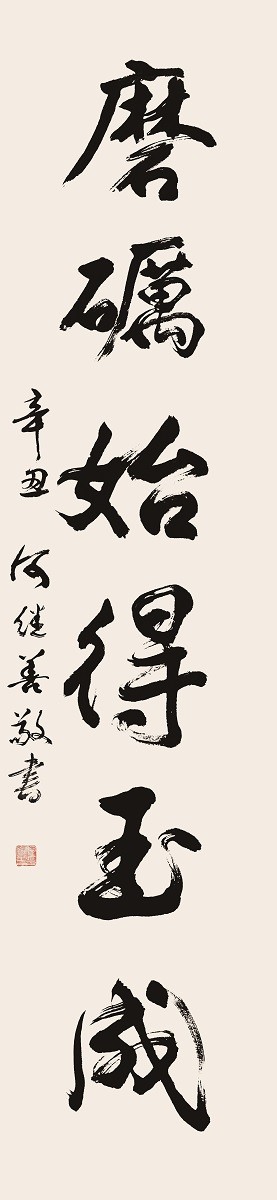 磨礪始得玉成
辛丑 何继善敬書